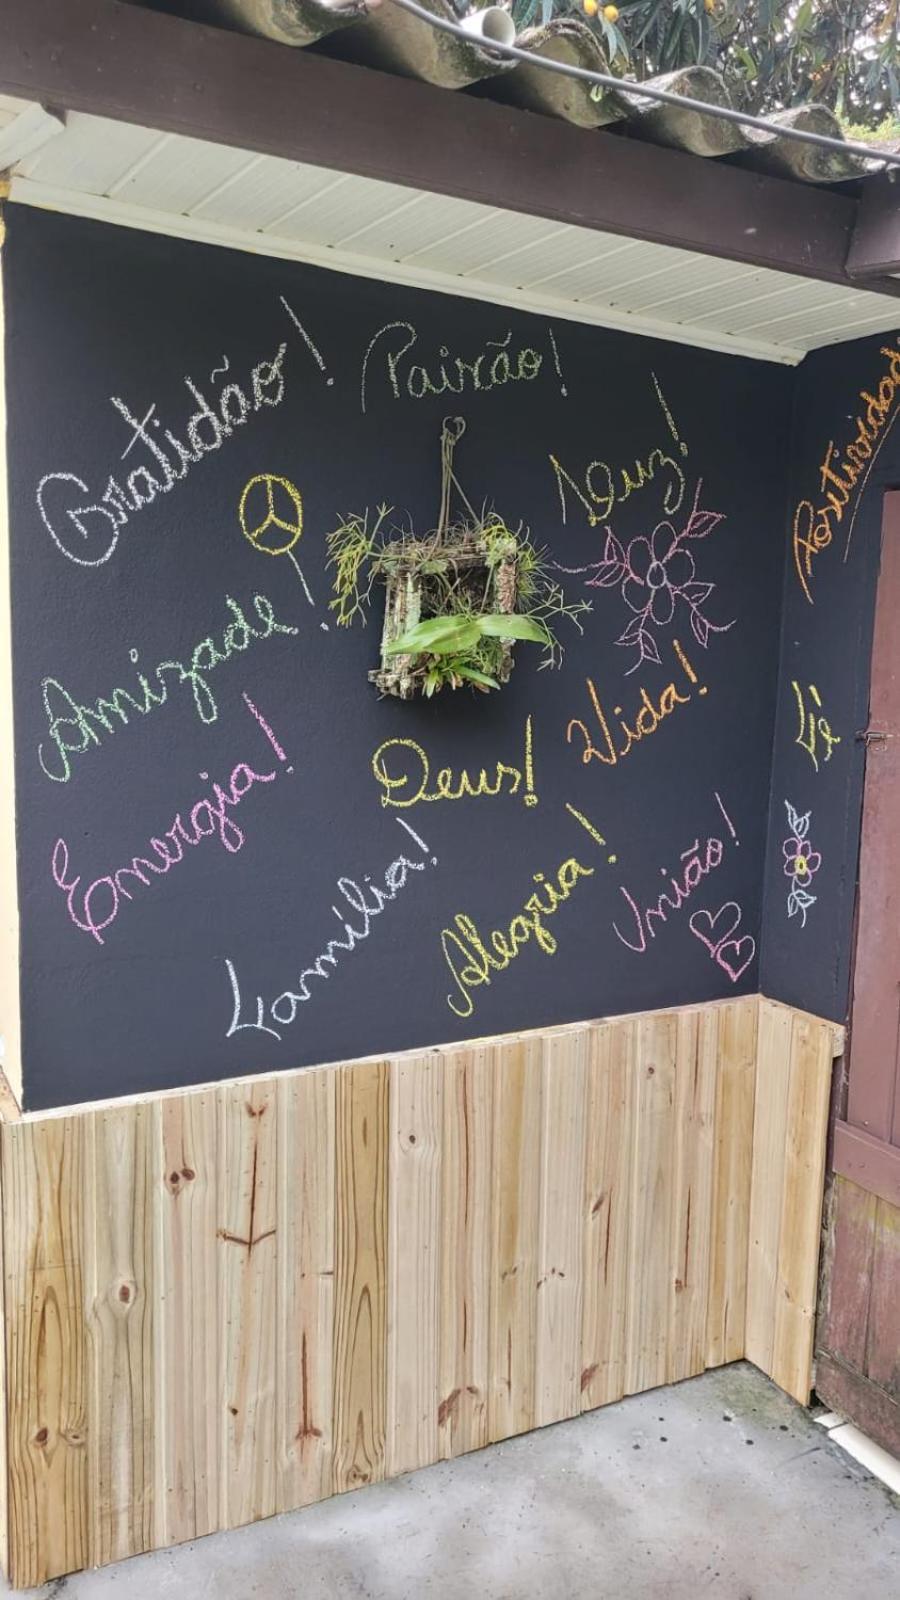 Gratidão!
Paixão!
Luz!
Positividade
Amizade!
Energia!
Deus!
Vida!
Fé
Família!
Alegria!
União!